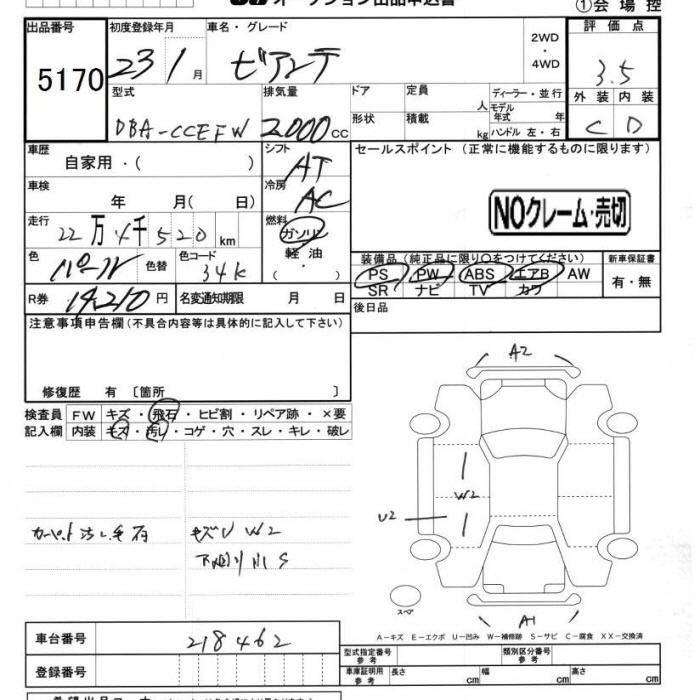 ①会場控
出品番号 初度登録年月 車名・グレード 評価点
5170 23 1月 ビアンテ 2WD・4WD 3.5
型式 排気量 ドア 定員 人 ディーラー・並行 外装 内装
DBA-CCEFW 2,000cc 形状 積載 kg モデル年式 年 ハンドル 左・右 C D
車歴 シフト セールスポイント (正常に機能するものに限ります)
自家用・( ) AT
車検 冷房
年 月( 日) AC NOクレーム・売切
走行 燃料
22万4千520km ガソリン
色 色替 色コード 軽油 装備品(純正品に限り○をつけてください) 新車保証書
パール 34K ・( ) PS PW ABS エアB AW 有・無
SR ナビ TV カワ
R券 14,210円 名変通知期限 月 日 後日品
注意事項申告欄(不具合内容等は具体的に記入して下さい)
修復歴 有〔箇所 〕
検査員 FW キズ・飛石・ヒビ割・リペア跡・×要
記入欄 内装 キズ・汚レ・コゲ・穴・スレ・キレ・破レ
A2
W2
U2
キズU W2
S
スペア
A1
A-キズ E-エクボ U-凹み W-補修跡 S-サビ C-腐食 XX-交換済
車台番号 218462
登録番号
型式指定番号 参考 類別区分番号 参考
車庫証明用 参考 長さ cm 幅 cm 高さ cm